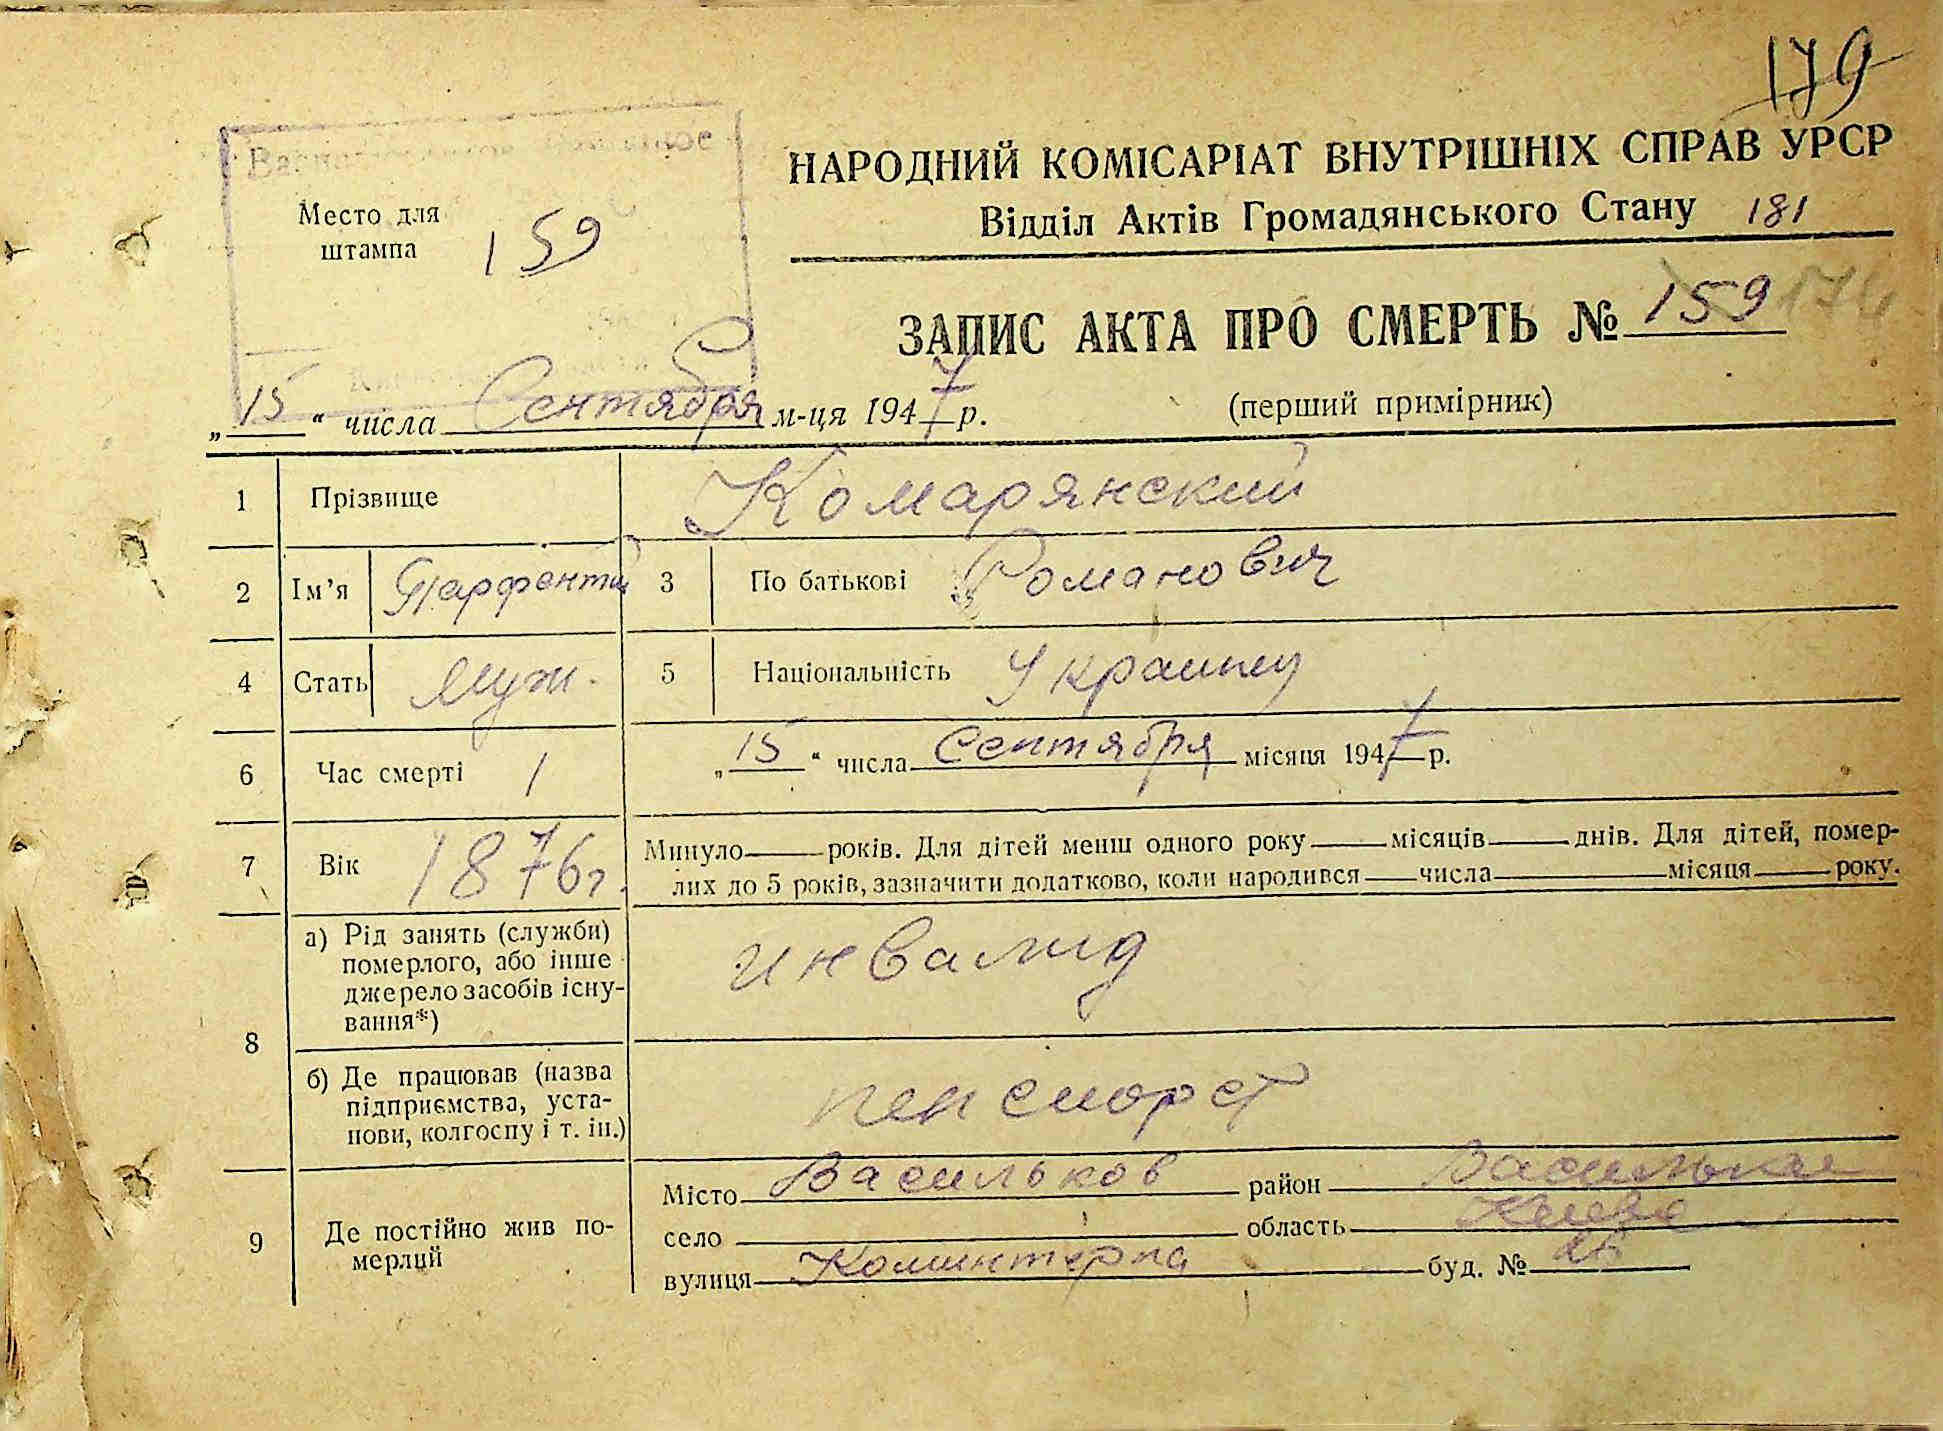 179
НАРОДНИЙ КОМІСАРІАТ ВНУТРІШНІХ СПРАВ УРСР
Відділ Актів Громадянського Стану 181
Место для
штампа 159
ЗАПИС АКТА ПРО СМЕРТЬ № 159
„15“ числа Сентября м-ця 1947 р.
(перший примірник)
1 Прізвище Комарянский
2 Ім’я Парфентий 3 По батькові Романович
4 Стать муж. 5 Національність Украинец
6 Час смерті „15“ числа Сентября місяця 1947 р.
7 Вік 1876 г. Минуло років. Для дітей менш одного року місяців днів. Для дітей, помер-
лих до 5 років, зазначити додатково, коли народився числа місяця року.
8 а) Рід занять (служби)
померлого, або інше
джерело засобів існу-
вання*)
инвалид
б) Де працював (назва
підприємства, уста-
нови, колгоспу і т. ін.)
9 Де постійно жив по-
мерлий
Місто Васильков район
село область
вулиця Коминтерна буд. № 26